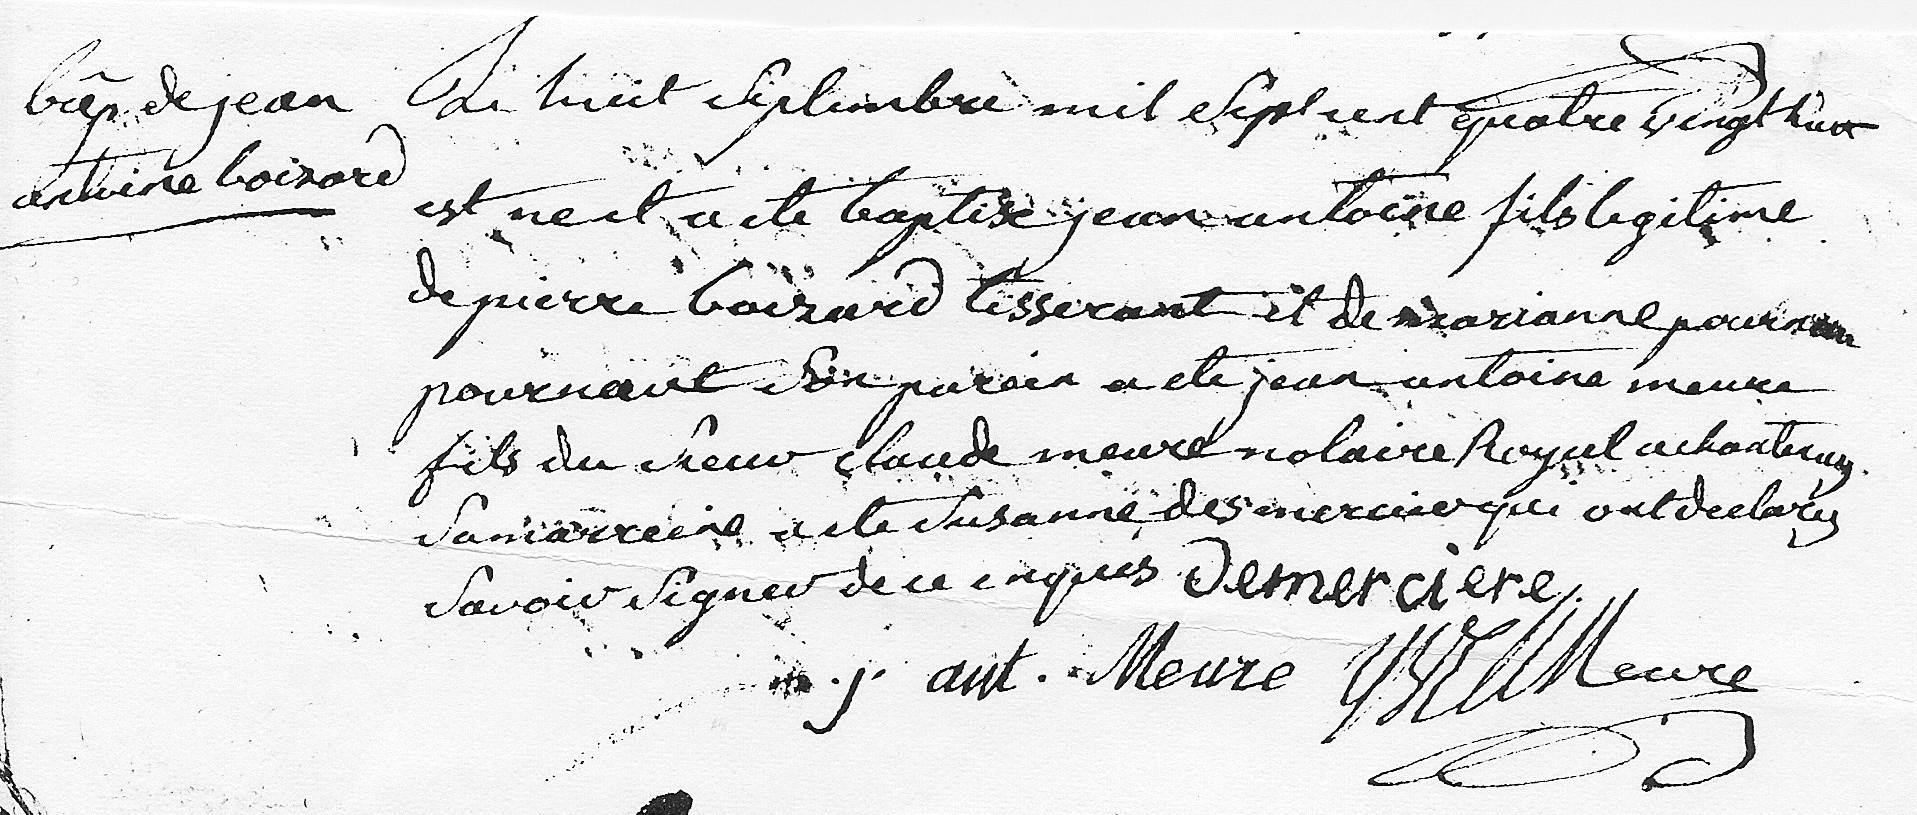 bâp de jean
antoine boizard
Le huit Septembre mil Sept cent quatre vingt huit
est ne et a ete baptise jean antoine fils legitime
de pierre boizard tisserant et de marianne
pournaut Son parein a ete jean antoine meure
fils du Sieur claude meure notaire Royal a chantenay
Sa marreine a ete Susanne desmercier qui ont declarés
Savoir Signer de ce enquis Demerciere
j. ant. Meure Meure